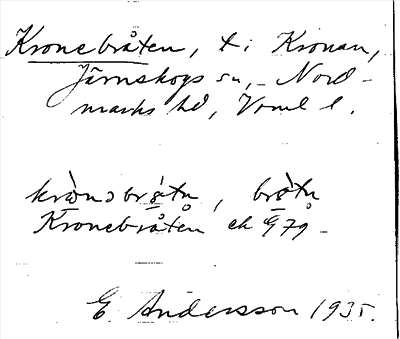 Kronebråten, t. i Kronan,
Järnskogs sn, Nord-
marks hd, Vrml l.
bråtn
Kronebråten ek G 79
E. Andersson 1935.